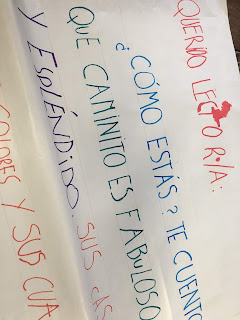 QUERIDO LECTOR/A:
¿CÓMO ESTÁS? TE CUENTO
QUE CAMINITO ES FABULOSO
Y ESPLÉNDIDO. SUS CAS
COLORES Y SUS CUA